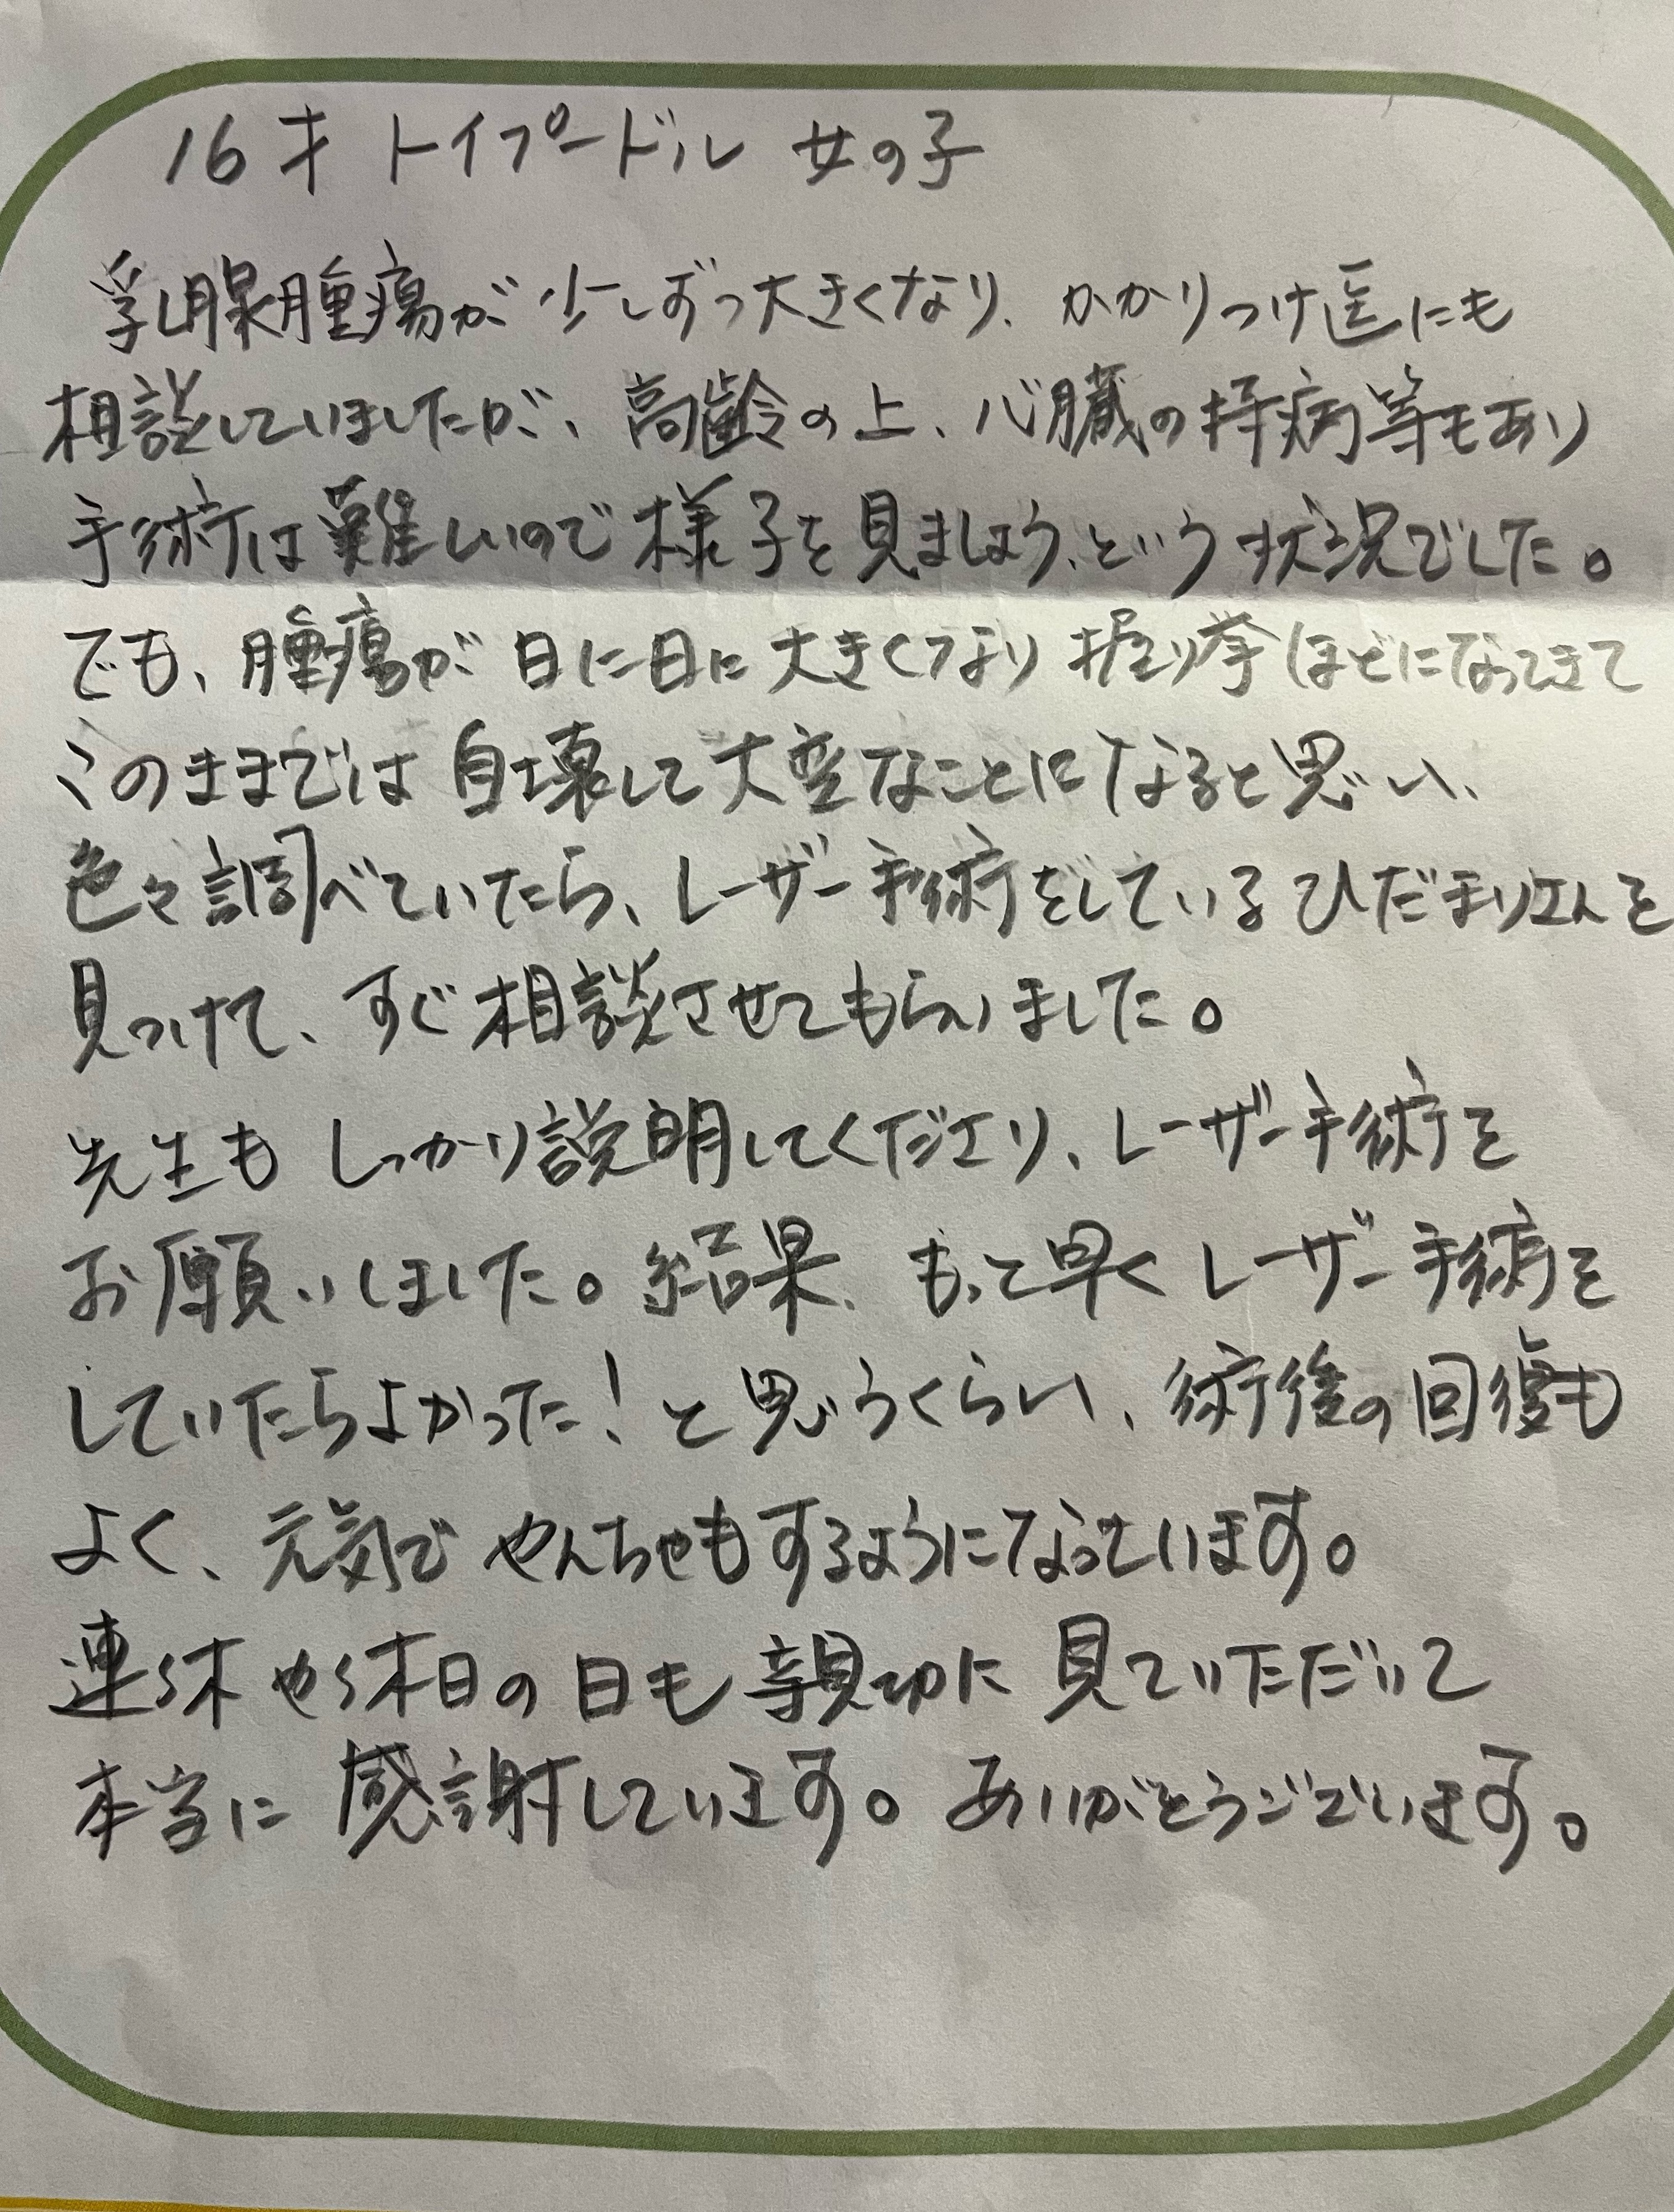 16才 トイプードル 女の子
乳腺腫瘍が少しずつ大きくなり、かかりつけ医にも
相談していましたが、高齢の上、心臓の持病等もあり
手術は難しいので様子を見ましょう、という状況でした。
でも、腫瘍が日に日に大きくなり握り拳ほどになってきて
このままでは自壊して大変なことになると思い、
色々調べていたら、レーザー手術をしているひだまりさんを
見つけて、すぐ相談させてもらいました。
先生もしっかり説明してくださり、レーザー手術を
お願いしました。結果、もっと早くレーザー手術を
していたらよかった！と思うくらい、術後の回復も
よく、元気でやんちゃもするようになっています。
連休や休日の日も親切に見ていただいて
本当に感謝しています。ありがとうございます。